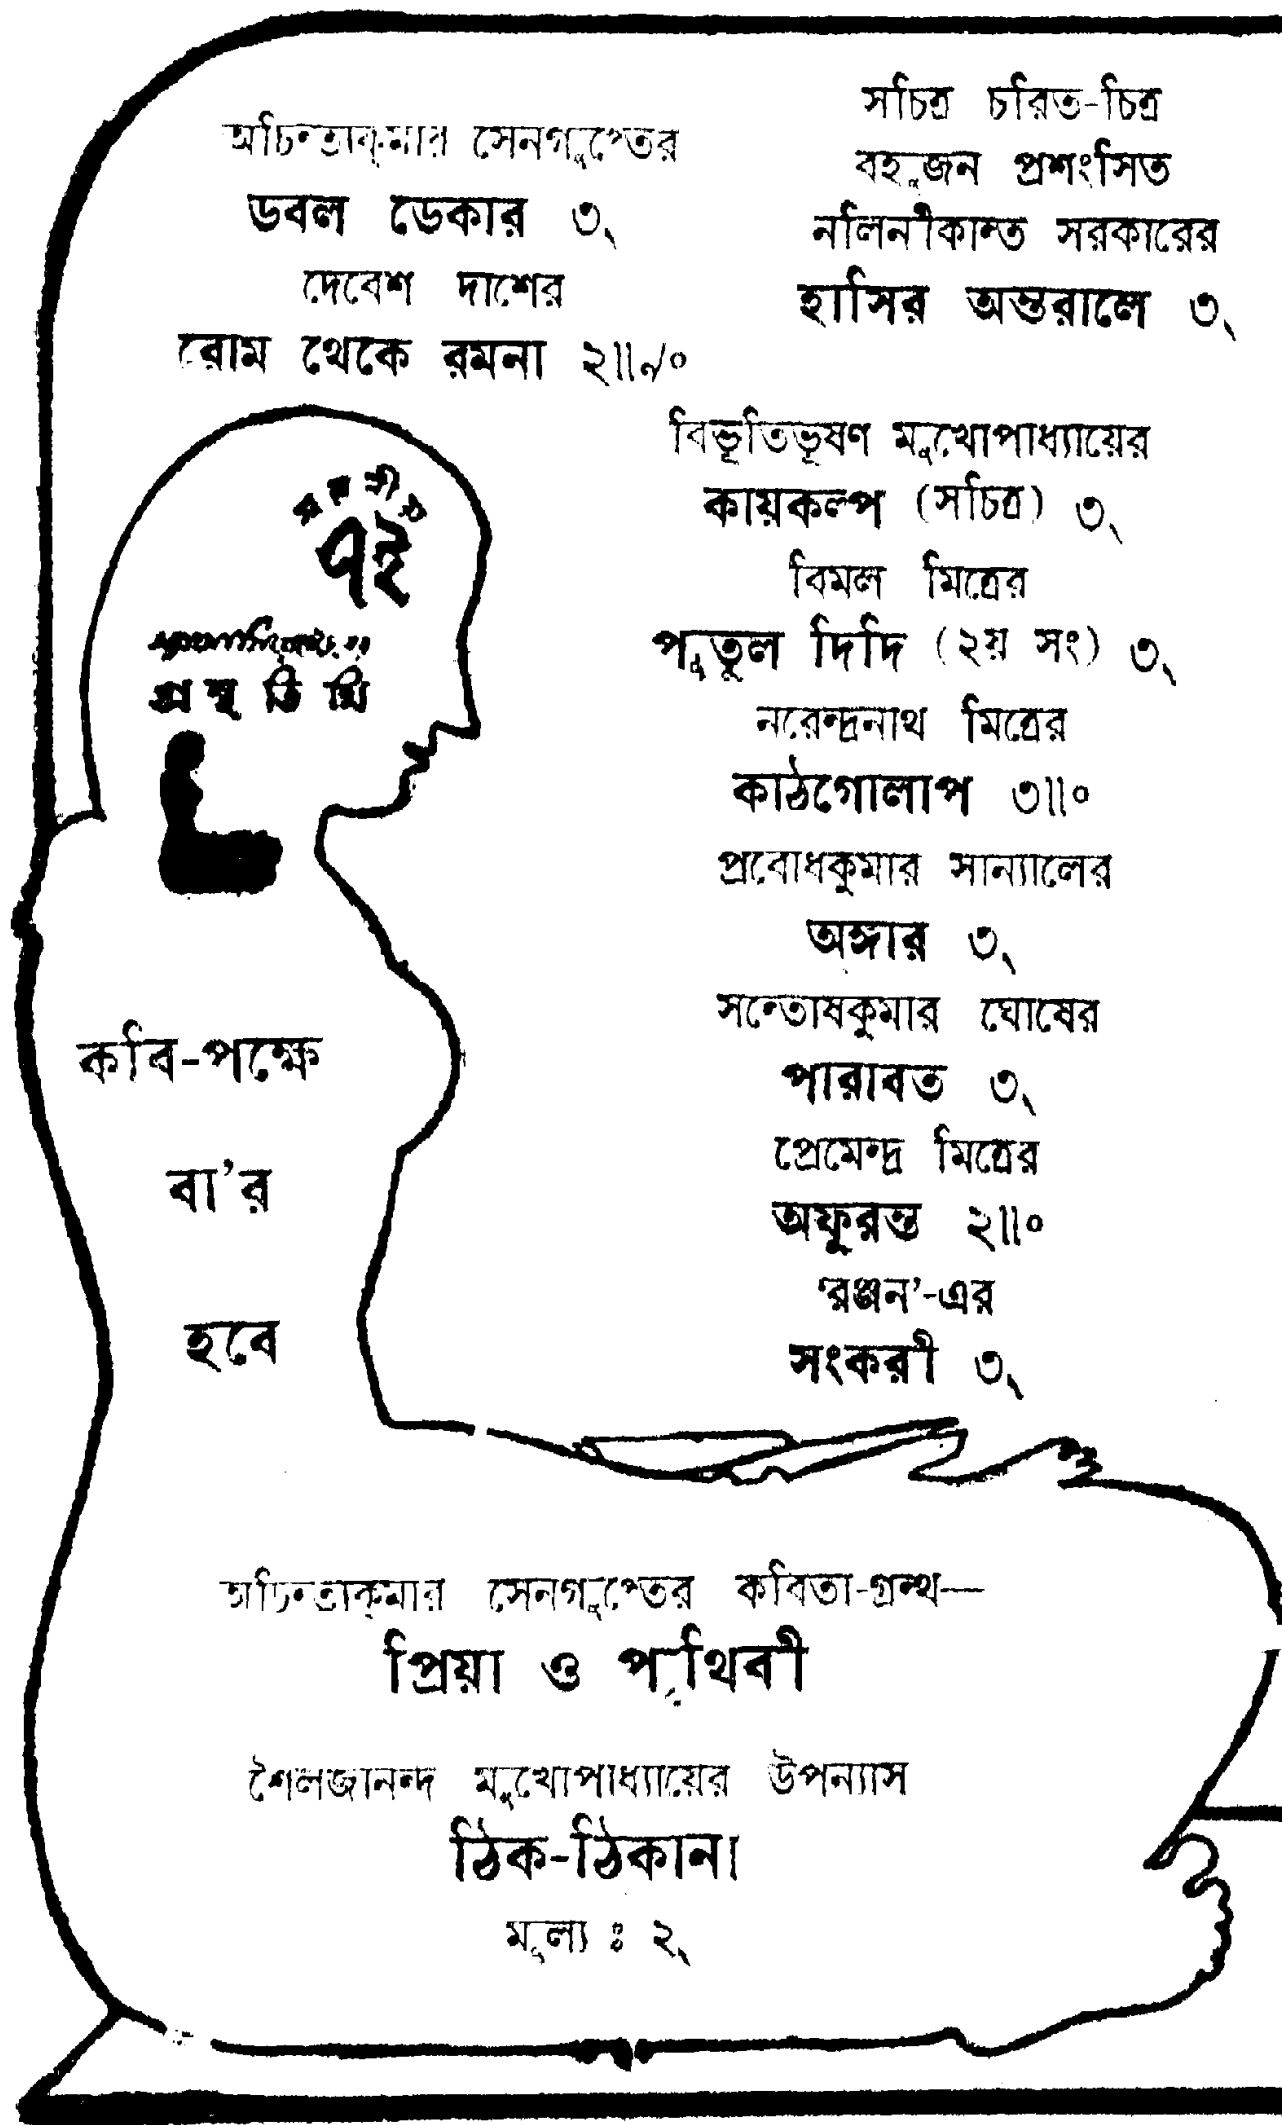 অচিন্ত্যকুমার সেনগুপ্তের
ডবল ডেকার ৩৲
দেবেশ দাশের
রোম থেকে রমনা ২৷৷৵০
সচিত্র চরিত-চিত্র
বহুজন প্রশংসিত
নলিনীকান্ত সরকারের
হাসির অন্তরালে ৩৲
বিভূতিভূষণ মুখোপাধ্যায়ের
কায়কল্প (সচিত্র) ৩৲
বিমল মিত্রের
পুতুল দিদি (২য় সং) ৩৲
নরেন্দ্রনাথ মিত্রের
কাঠগোলাপ ৩৷৷০
প্রবোধকুমার সান্যালের
অঙ্গার ৩৲
সন্তোষকুমার ঘোষের
পারাবত ৩৲
প্রেমেন্দ্র মিত্রের
অফুরন্ত ২৷৷০
‘রঞ্জন’-এর
সংকরী ৩৲
এই
কবি-পক্ষে
বা’র
হবে
অচিন্ত্যকুমার সেনগুপ্তের কবিতা-গ্রন্থ—
প্রিয়া ও পৃথিবী
শৈলজানন্দ মুখোপাধ্যায়ের উপন্যাস
ঠিক-ঠিকানা
মূল্য ঃ ২৲